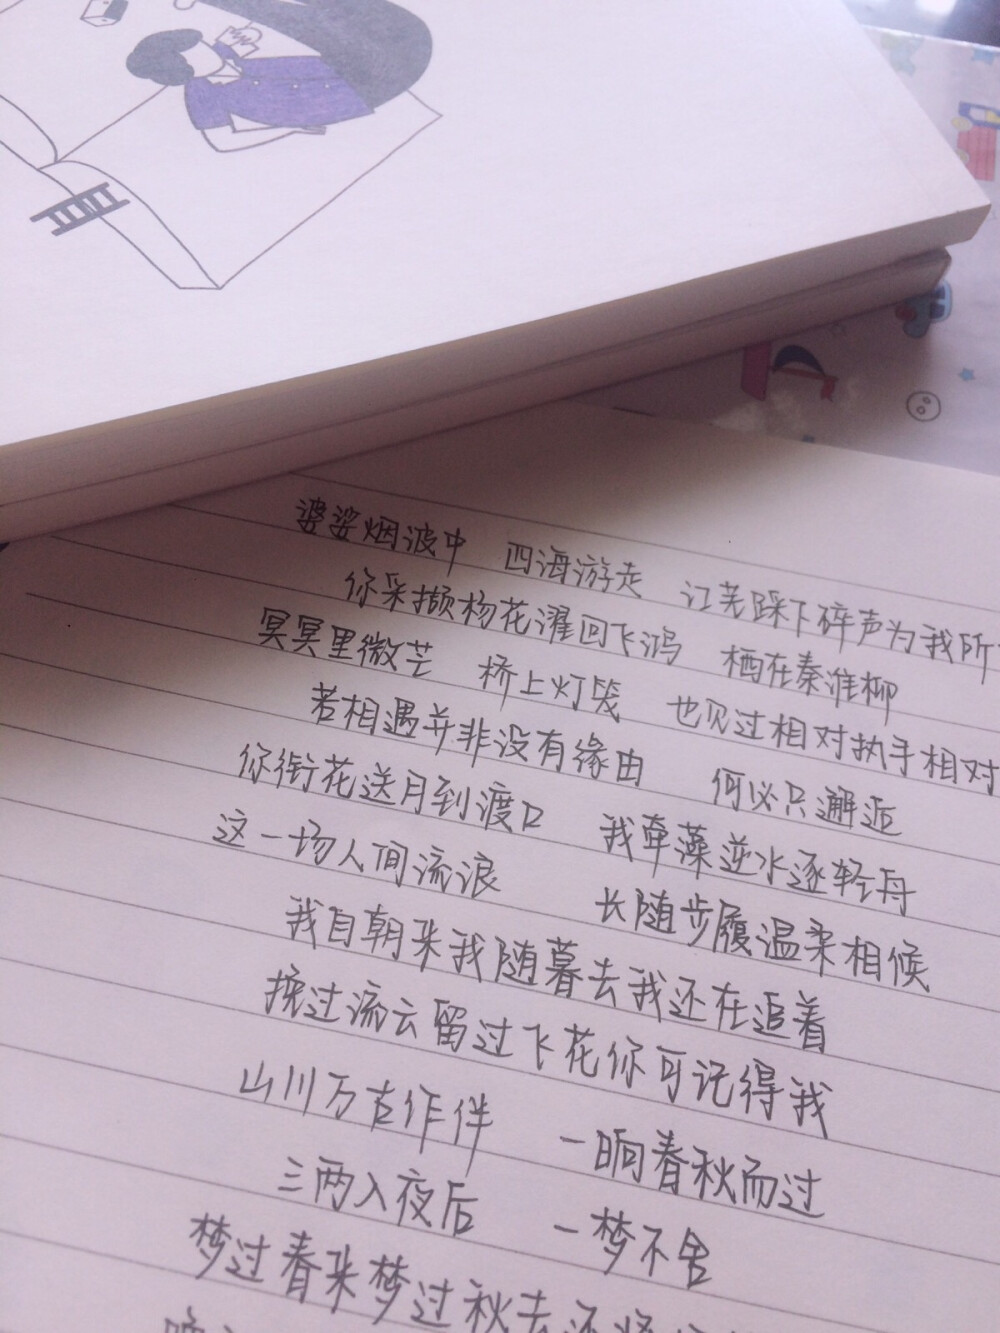 婆娑烟波中 四海游走 让羌踩下碎声为我所
你采撷杨花濯回飞鸿 栖在秦淮柳
冥冥里微芒 桥上灯盏 也见过相对执手相对
若相遇并非没有缘由 何必只邂逅
你衔花送月到渡口 我牵藻逆水逐轻舟
这一场人间流浪 长随步履温柔相候
我自朝来我随暮去我还在追着
挽过流云留过飞花你可记得我
山川万古作伴 一晌春秋而过
三两入夜后 一梦不舍
梦过春来梦过秋去还将